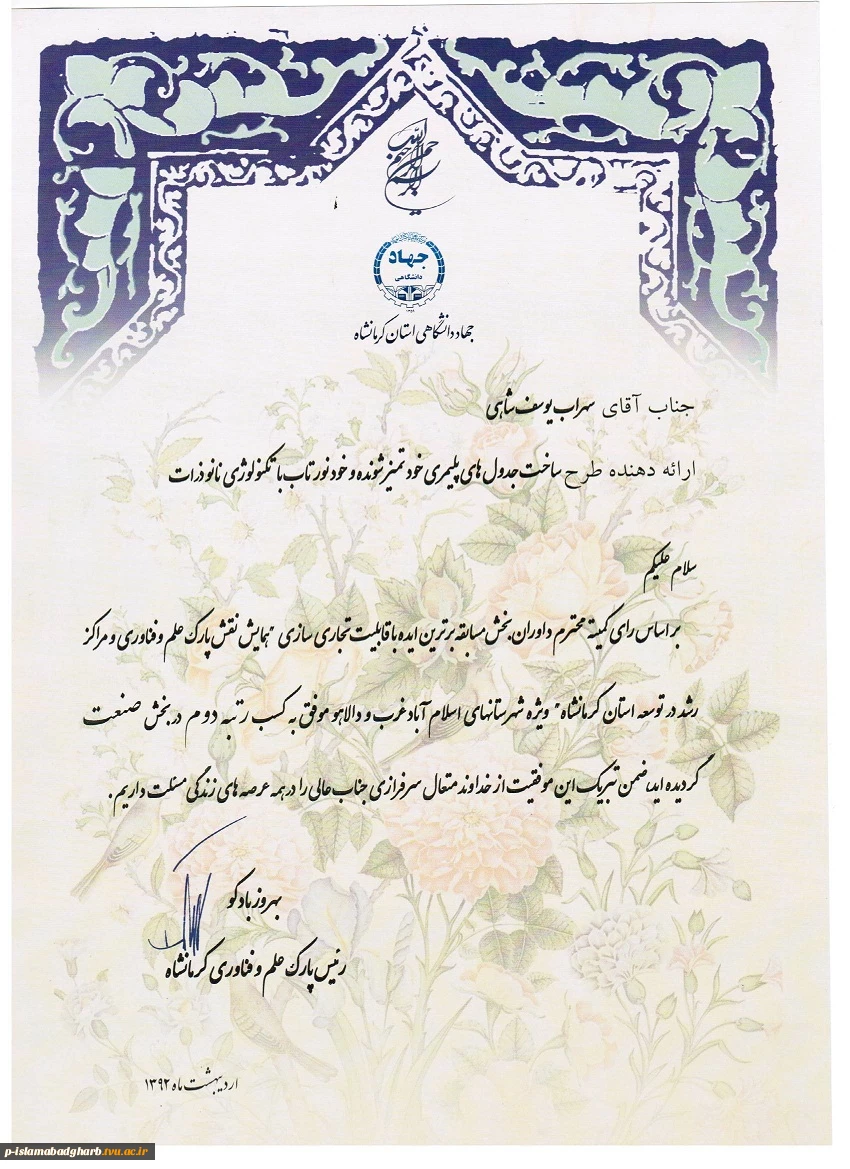 بسم الله الرحمن الرحیم
جهاد
دانشگاهی
جهاد دانشگاهی استان کرمانشاه
جناب آقای سهراب یوسف شاهی
ارائه دهنده طرح ساخت جدول های پلیمری خود تمیز شونده و خود نور تاب با تکنولوژی نانو ذرات
سلام علیکم
بر اساس رای کمیته محترم داوران بخش مسابقه برترین ایده با قابلیت تجاری سازی "همایش نقش پارک علم و فناوری و مراکز
رشد در توسعه استان کرمانشاه" ویژه شهرستانهای اسلام آباد غرب و دالاهو موفق به کسب رتبه دوم در بخش صنعت
گردیده اید، ضمن تبریک این موفقیت از خداوند متعال سرفرازی جناب عالی را در همه عرصه های زندگی مسئلت داریم.
بهروز بادکو
رئیس پارک علم و فناوری کرمانشاه
اردیبهشت ماه ۱۳۹۲
p-islamabadgharb.tvu.ac.ir